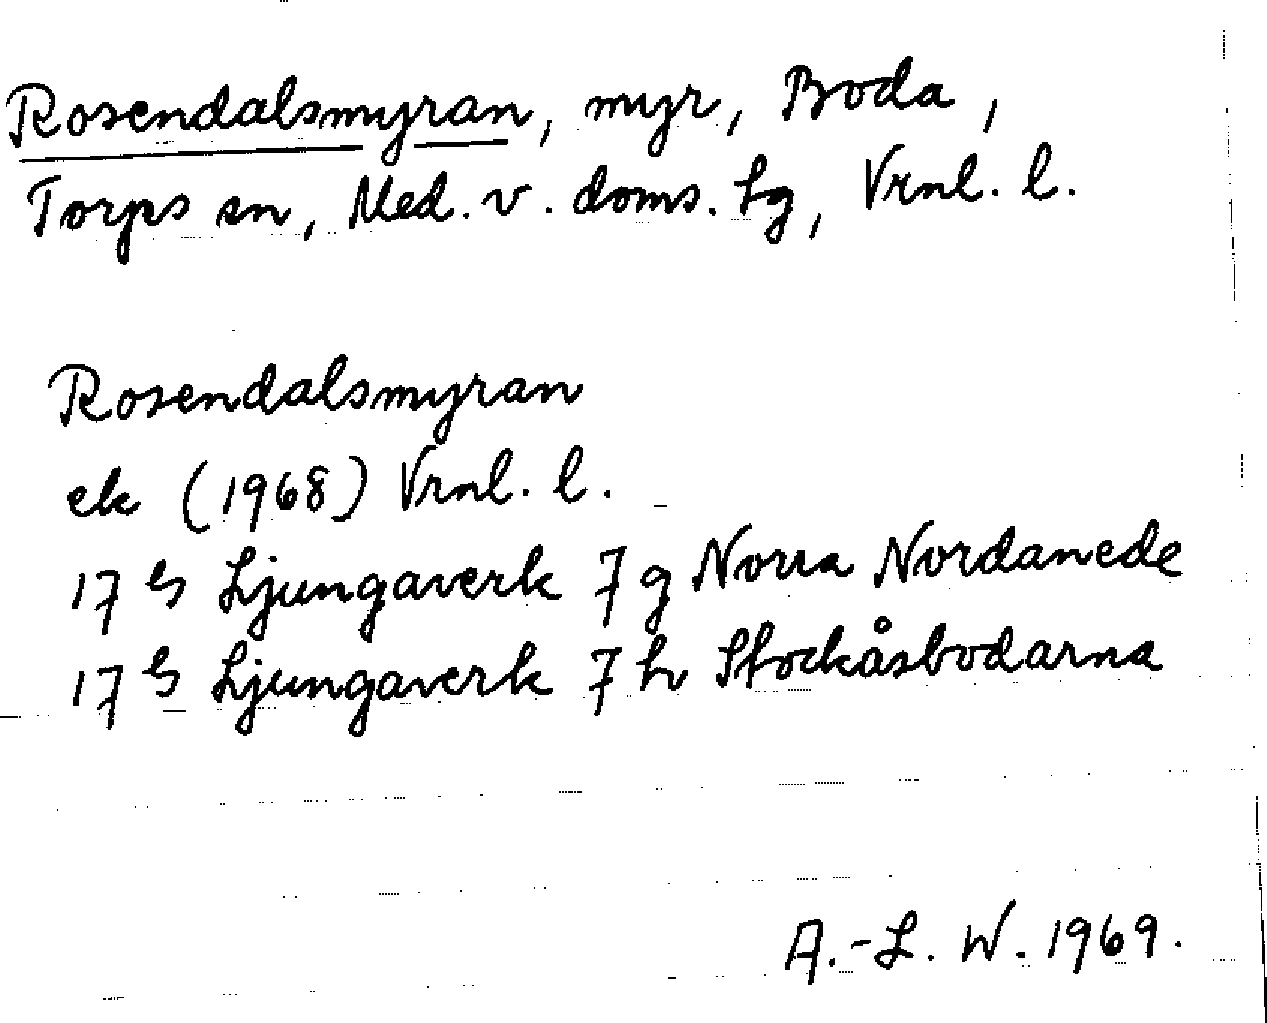 Rosendalsmyran, myr, Boda,
Torps sn, Med. v. doms. lg, Vrnl. l.
Rosendalsmyran
ek (1968) Vrnl. l.
17 G Ljungaverk 7 g Norra Nordanede
17 G Ljungaverk 7 h Stockåsbodarna
A.-L. W. 1969.